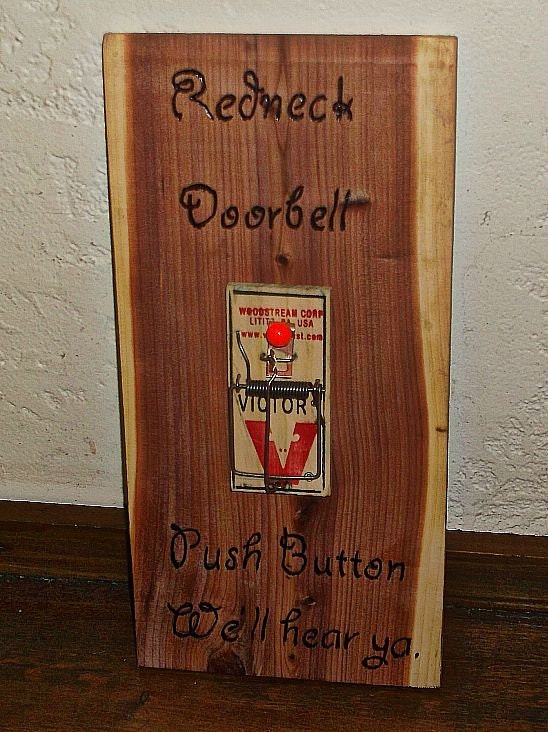 Redneck
Doorbell
WOODSTREAM CORP
LITITZ PA USA
VICTOR
Push Button
We'll hear ya.